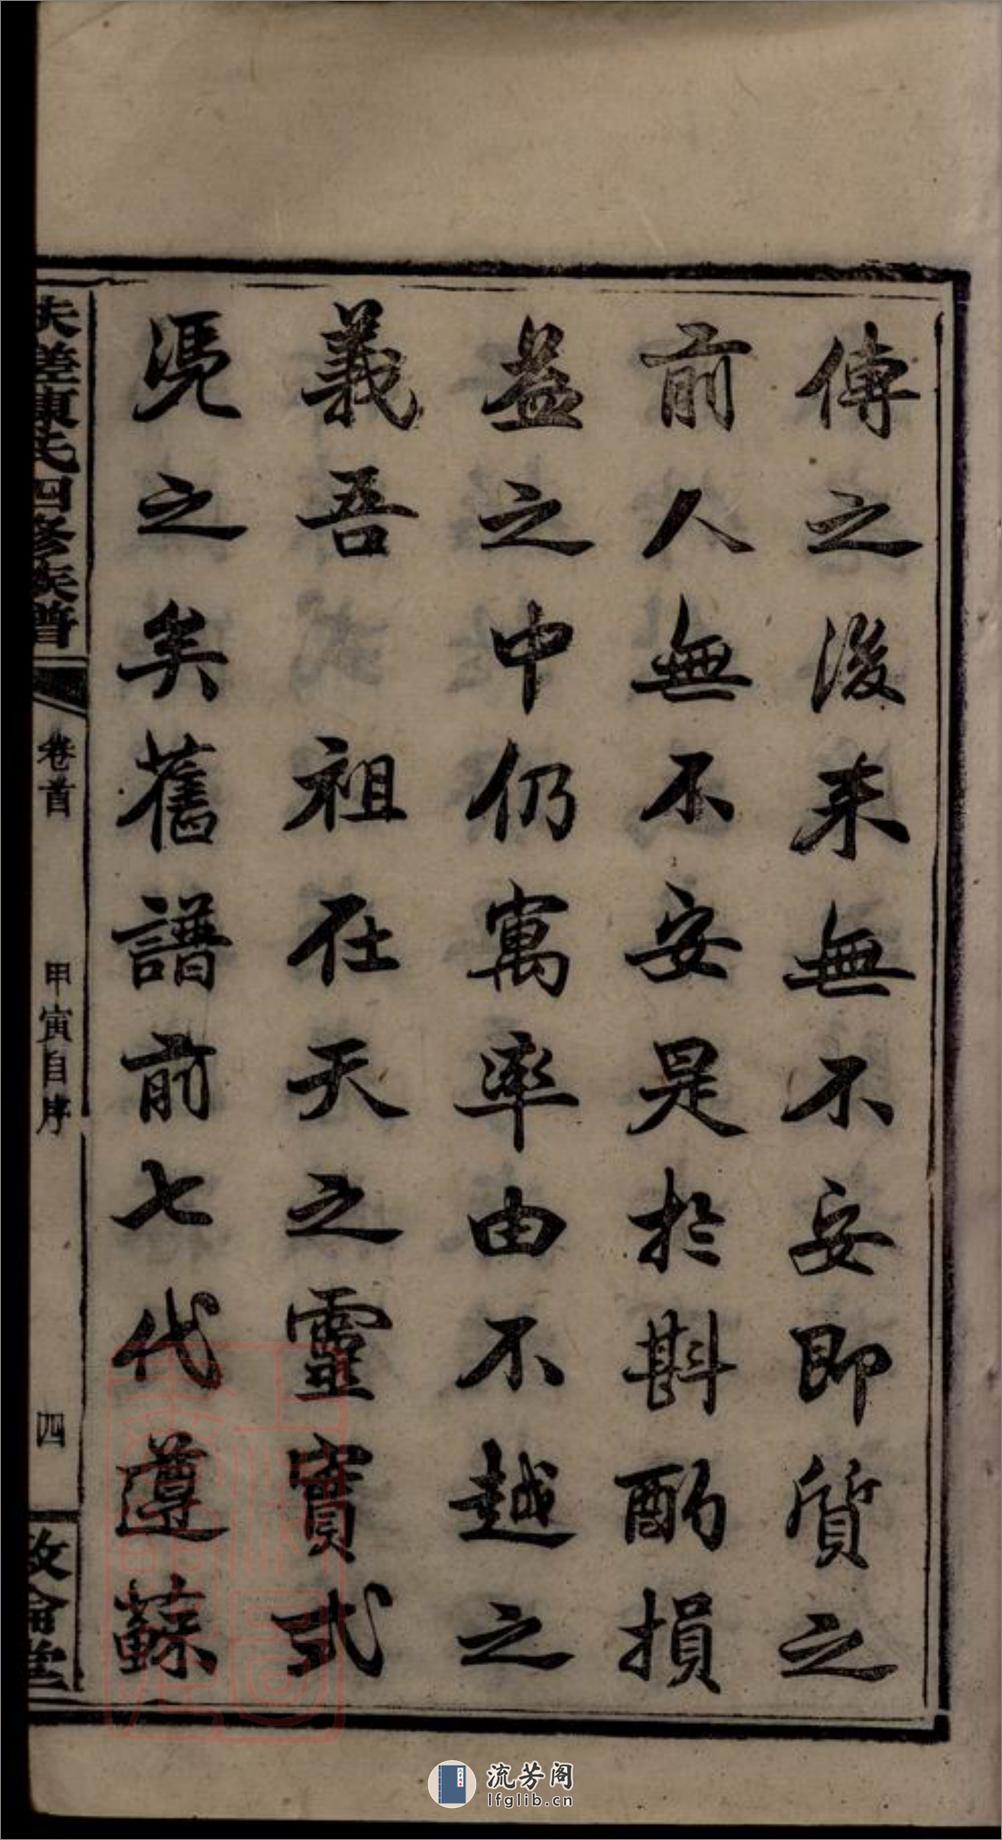 傳之後来無不妥即質之
前人無不安是於斟酌損
益之中仍寓率由不越之
義吾 祖在天之靈實式
憑之矣舊譜前七代遵蘇
陳氏四修族譜
卷首
甲寅自序
四
敦倫堂
流芳阁
lfglib.cn